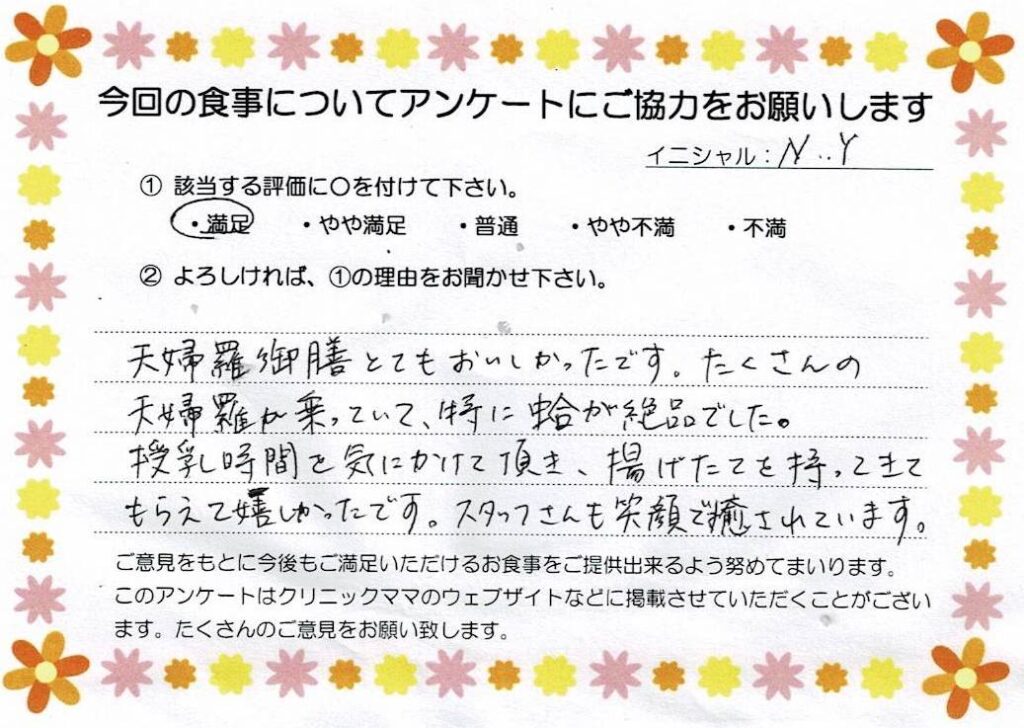 今回の食事についてアンケートにご協力をお願いします
イニシャル：N..Y
① 該当する評価に○を付けて下さい。
・満足 ・やや満足 ・普通 ・やや不満 ・不満
② よろしければ、①の理由をお聞かせ下さい。
天婦羅御膳とてもおいしかったです。たくさんの
天婦羅が乗っていて、特に蛤が絶品でした。
授乳時間を気にかけて頂き、揚げたてを持ってきて
もらえて嬉しかったです。スタッフさんも笑顔で癒されています。
ご意見をもとに今後もご満足いただけるお食事をご提供出来るよう努めてまいります。
このアンケートはクリニックママのウェブサイトなどに掲載させていただくことがござい
ます。たくさんのご意見をお願い致します。